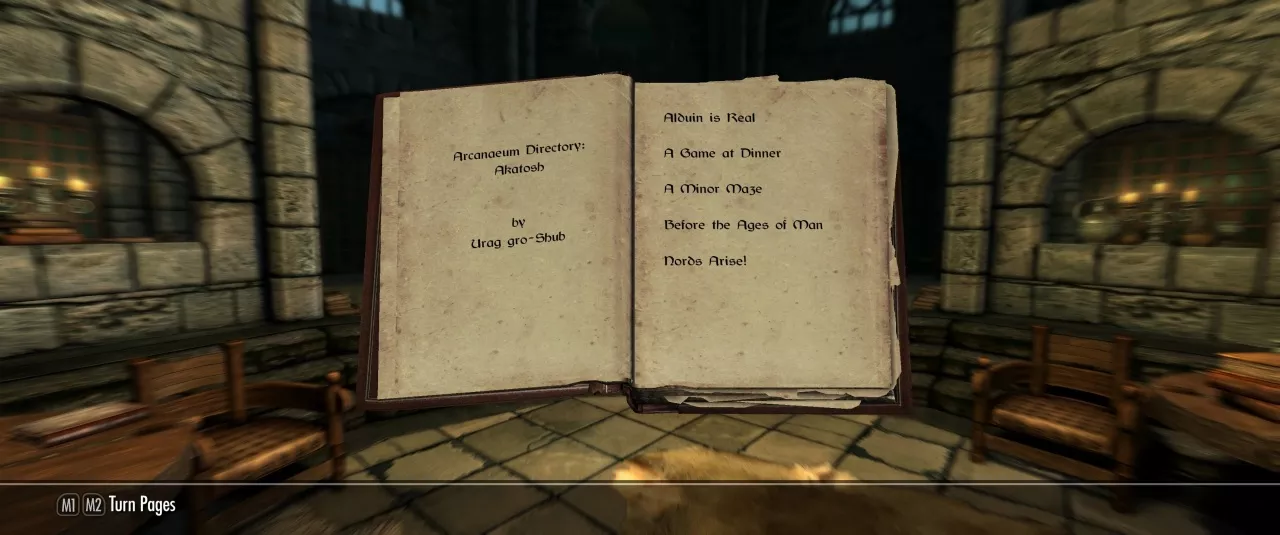 Arcanaeum Directory:
Akatosh
by
Urag gro-Shub
Alduin is Real
A Game at Dinner
A Minor Maze
Before the Ages of Man
Nords Arise!
M1 M2 Turn Pages